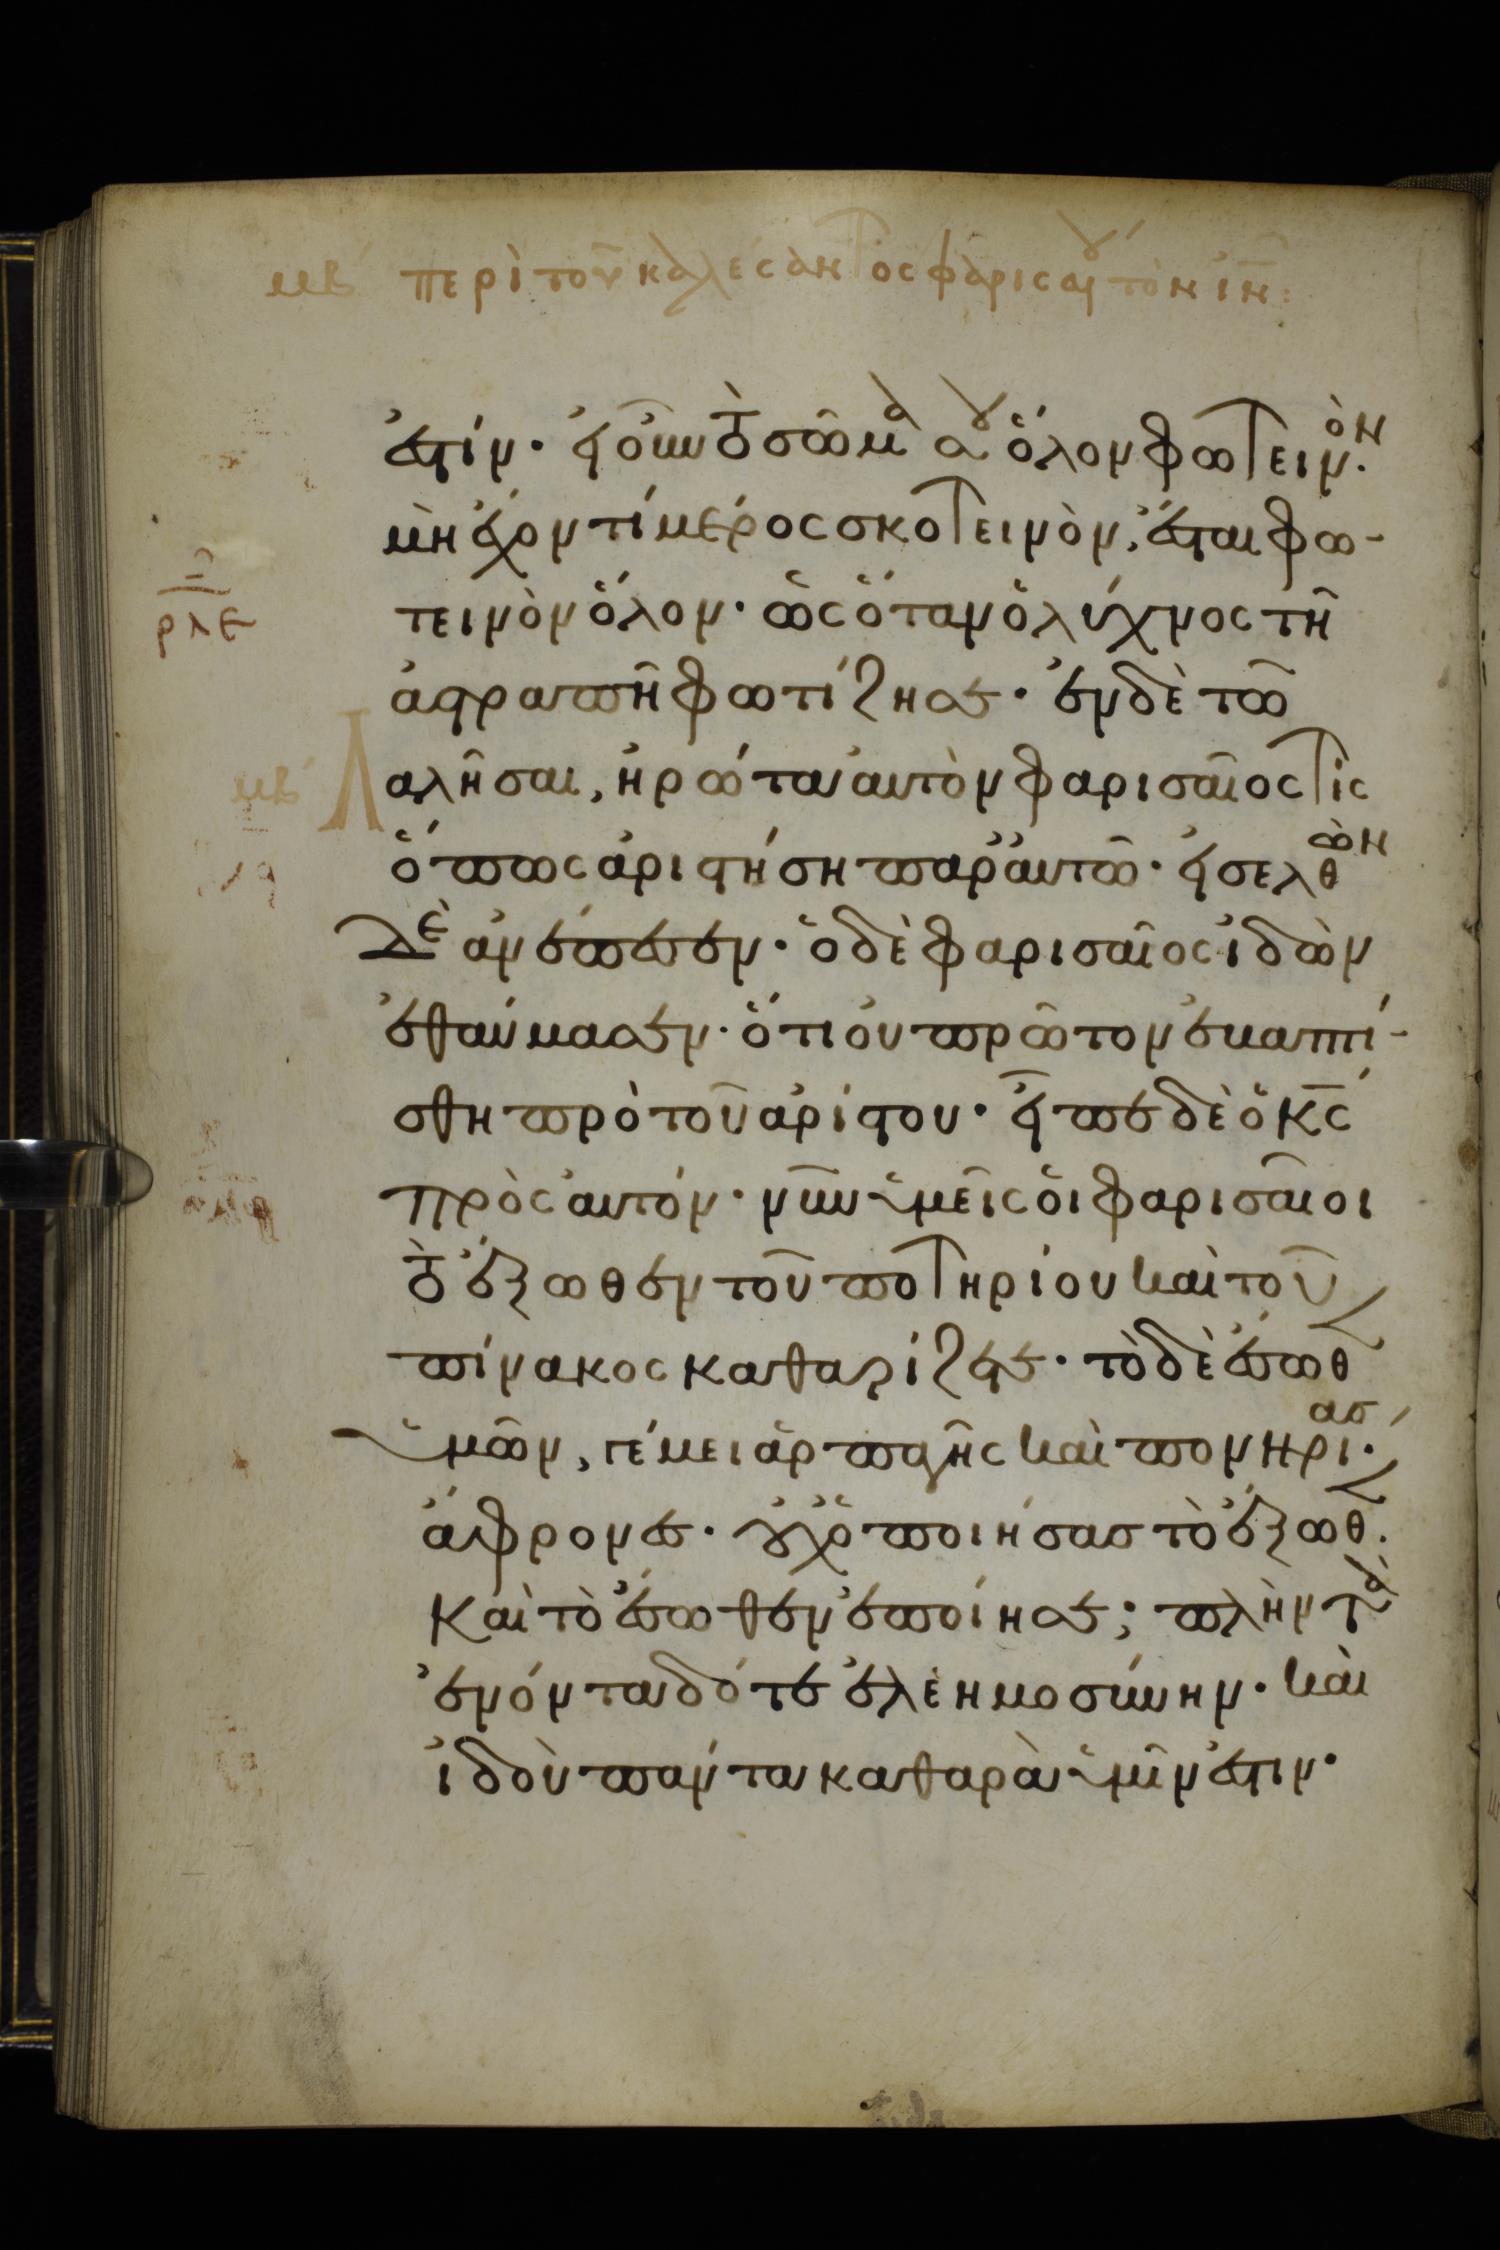 μβ περὶ τοῦ καλέσαντος φαρισαίου τὸν ἰν̅:
ἐστίν· εἰ οὖν τὸ σῶμα σου ὅλον φωτεινὸν.
μὴ ἔχον τί μέρος σκοτεινὸν, ἔσται φω-
ρλε
τεινὸν ὅλον· ὡς ὅταν ὁ λύχνος τῆ
ἀστραπῆ φωτίζη σε· ἐν δὲ τῶ
μβ Λαλῆσαι, ἠρώτα αὐτὸν φαρισαῖος τὶς
ὅπως ἀριστήση παρ' αὐτῶ· εἰσελθὼν
δὲ ἀνέπεσεν· ὁ δὲ φαρισαῖος ἰδὼν
ἐθαύμασεν· ὅτι οὐ πρῶτον ἐβαπτί-
σθη πρὸ τοῦ ἀρίστου· εἶπε δὲ ὁ κ̅ς
πρὸς αὐτόν· νῦν ὑμεῖς οἱ φαρισαῖοι
τὸ ἔξωθεν τοῦ ποτηρίου καὶ τοῦ
πίνακος καθαρίζετε· τὸ δὲ ἔσωθ
ὑμῶν, γέμει ἁρπαγῆς καὶ πονηρίας·
ἄφρονες· οὐχ ὁ ποιήσας τὸ ἔξωθ.
Καὶ τὸ ἔσωθεν ἐποίησε; πλὴν τὰ
ἐνόντα δότε ἐλεημοσύνην· καὶ
ἰδοὺ πάντα καθαρὰ ὑμῖν ἐστιν·